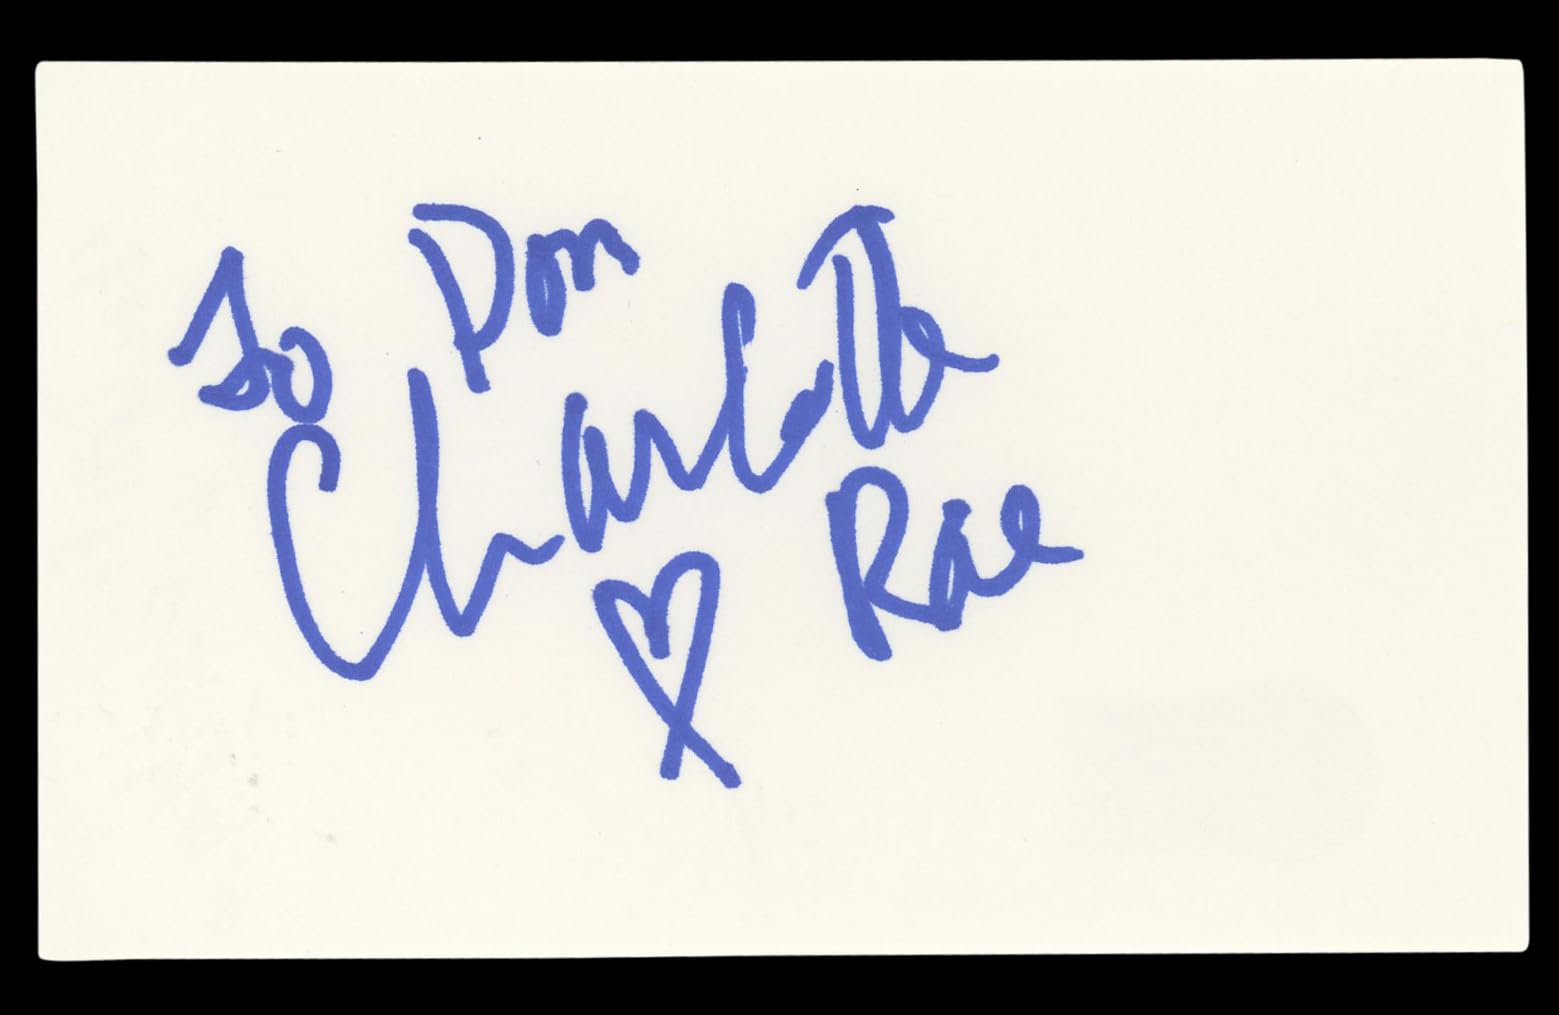 To Don
Charlotte
Rae